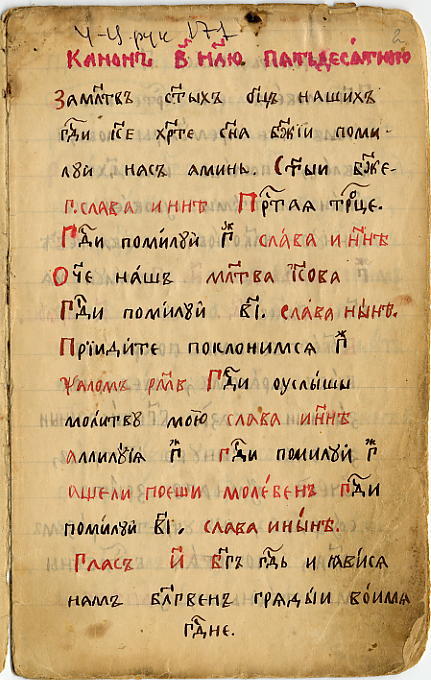 Ч-Ц рук 177
2
Канонъ в҃ нл҃ю патьдеса́тнꙋю
Замл҃твъ ст҃ыхъ ѻц҃ъ нашихъ
гд҃и іс҃е хр҃те сн҃а бж҃їи поми-
луи насъ аминь. Ст҃ыи бж҃е-
г. слава и ннѣ Прт҃ая трц҃е.
Гд҃и поми́луй г҃ж сла́ва и нн҃ѣ
Оч҃е на́шъ мл҃тва іс҃ова
Гд҃и поми́луй в҃і. сла́ва нн҃ѣ.
Прїиди́те поклонимся г҃ж
ѱаломъ рм҃в Гд҃и оуслы́шы
моли́твꙋ мою̀ слава и нн҃ѣ
аллилꙋ́їя г҃ж гд҃и поми́луй г҃ж
ащели поеши моле́бенъ гд҃и
поми́луй в҃і. сла́ва и ны́нѣ.
Гласъ и҃ бг҃ъ гд҃ь и ꙗви́ся
намъ бл҃гвенъ гряды́и во́имя
гд҃не.